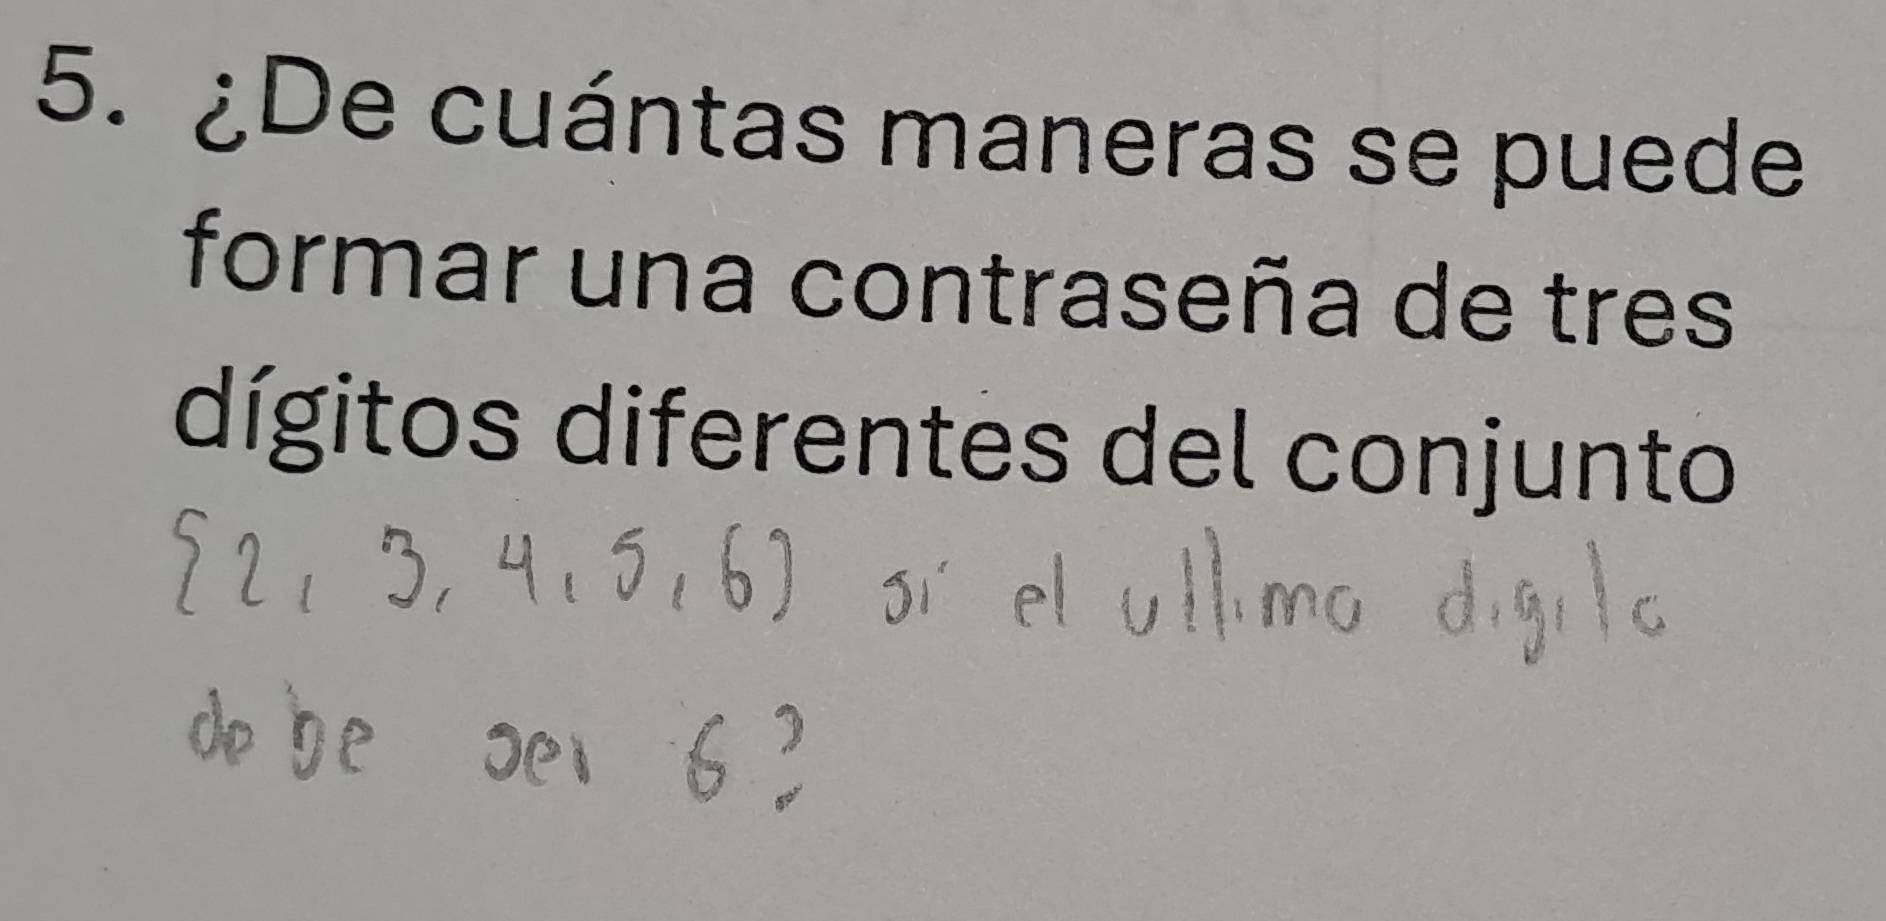 5. ¿De cuántas maneras se puede
formar una contraseña de tres
dígitos diferentes del conjunto
{2, 3, 4, 5, 6} si el ultimo digito
debe ser 6?